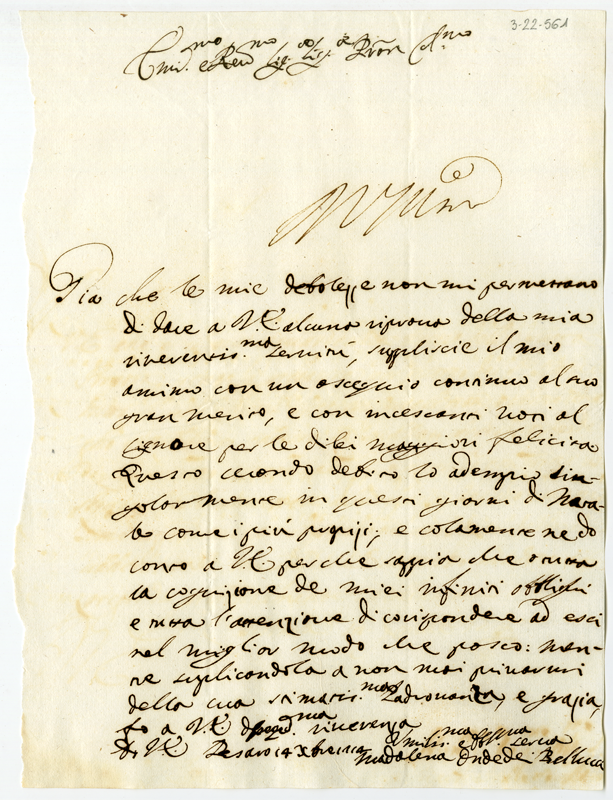 3-22-561
Em.mo e Rev.mo Sig.r Sig.r e Pron Col.mo
Gia che le mie debolezze non mi permettano
di dare a V.E. alcuna riprova della mia
riverentis.ma servitù, suplisce il mio
animo con un osequio continuo al suo
gran merito, e con incesanti voti al
Signore per le di lei maggiori felicità
Questo secondo debito lo adempio sin-
golarmente in questi giorni di Nata-
le come i più proprij; e solamente ne do
conto a V.E. perche sappia che o tutta
la cognizione de miei infiniti obblighi
e tutta l'attenzione di corispondere ad esi
nel miglior modo che posso: men-
re suplicandola a non mai privarmi
della sua stimatis.ma Padronanza, e grazia,
fo a V.E. riverenza
Di V.E. Pesaro 14
Umilis.ma e Obb.ma Serva
Madalena Ondedei Belluca